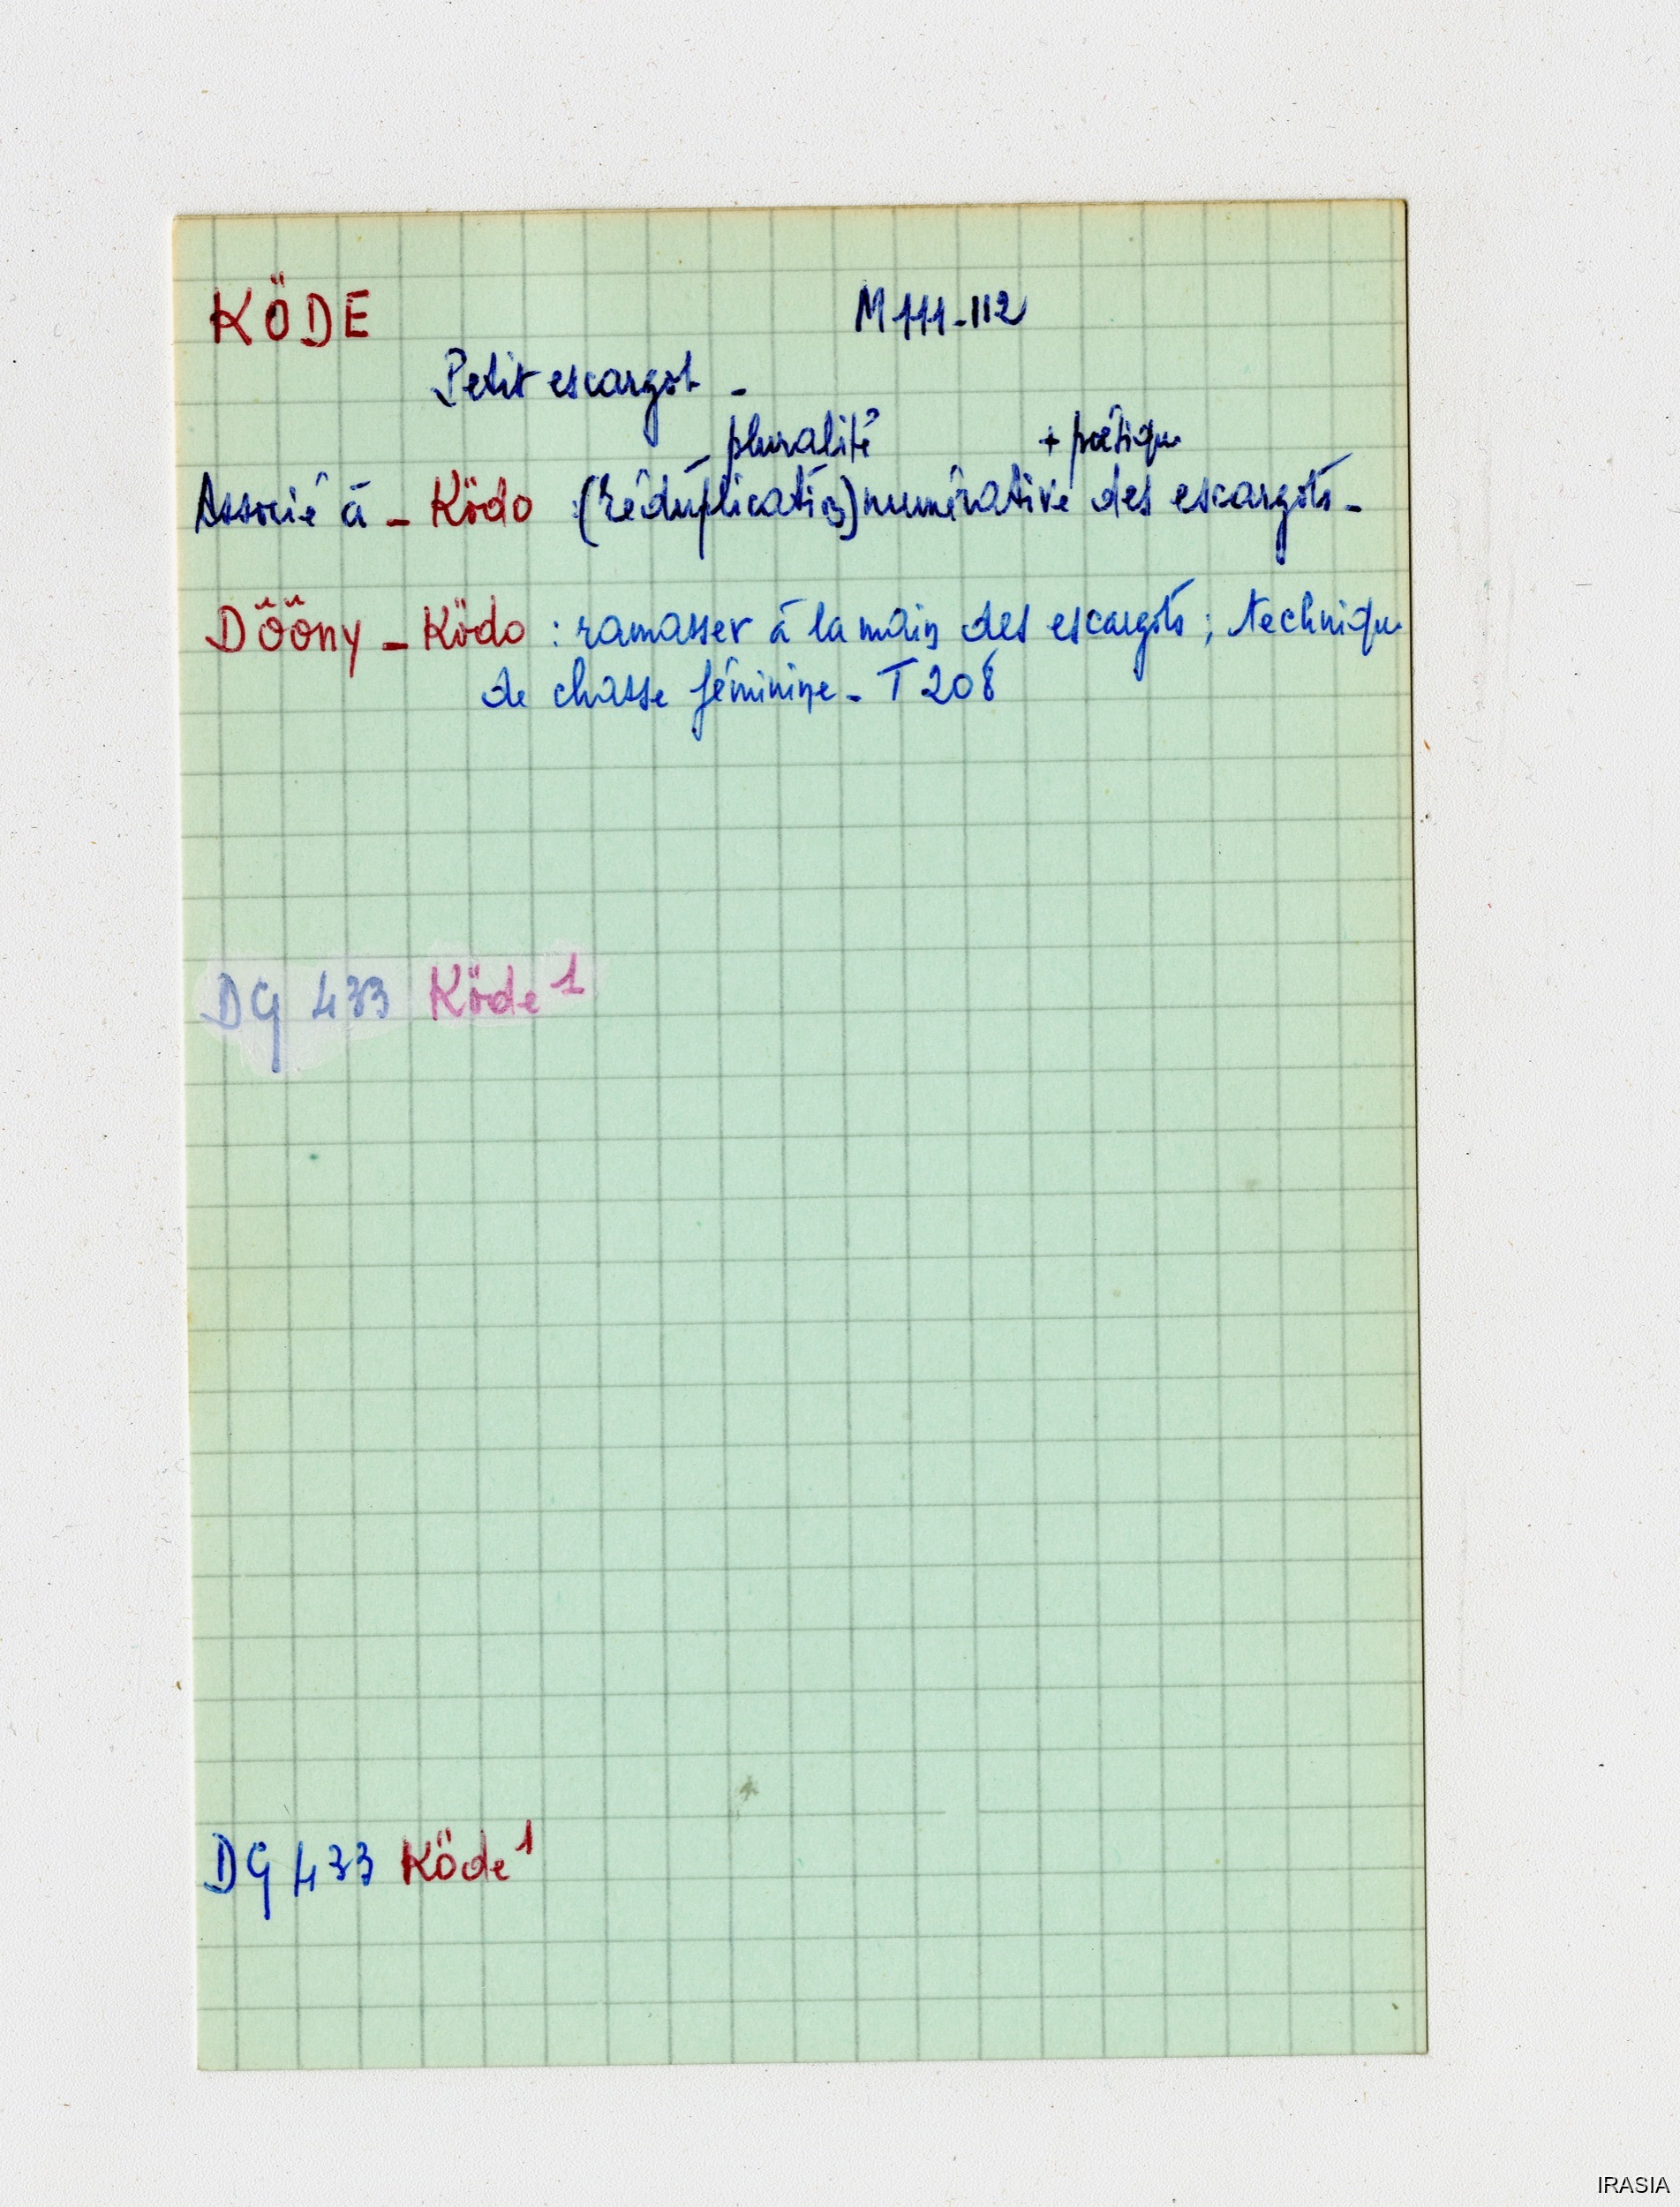 KÖDE M 111-112
Petit escargot -
pluralité + poétique
Associé à - Ködo (réduplication) numérative des escargots -
DÖ̂Ö̂ny - Ködo : ramasser à la main des escargots ; technique
de chasse féminine - T 208
DG 433 Köde ¹
DG 433 Köde ¹
IRASIA